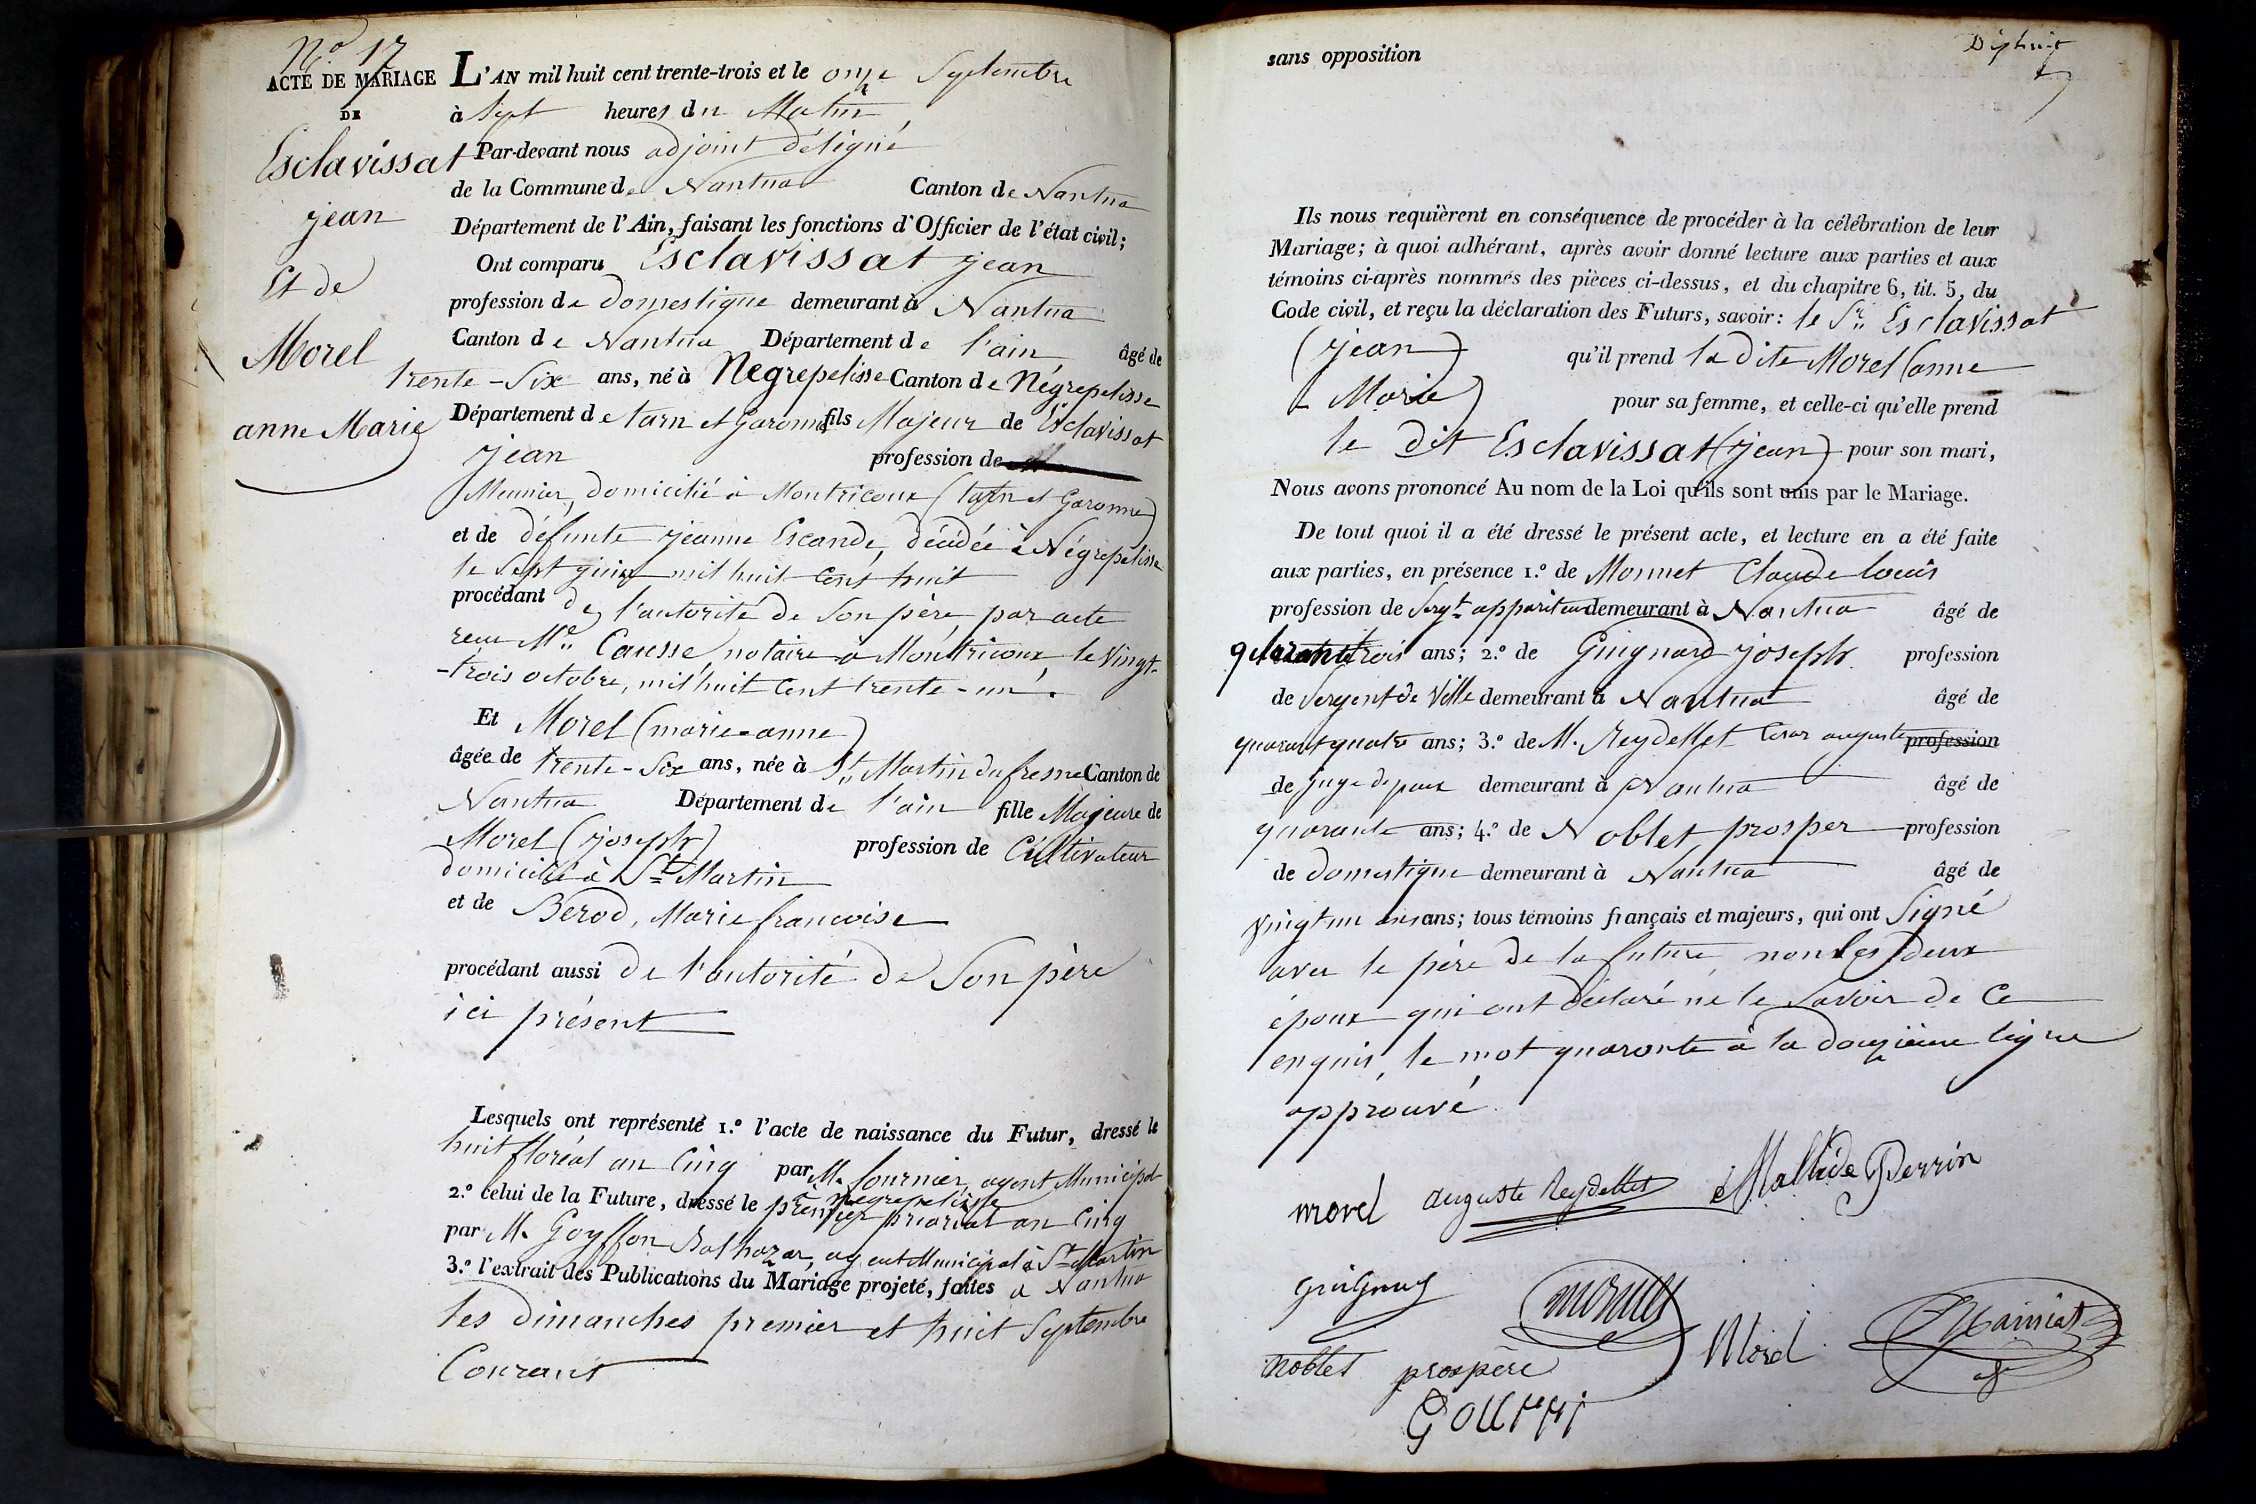 N.º 17
ACTE DE MARIAGE
DE
Esclavissat
jean
Et de
Morel
anne Marie
L'AN mil huit cent trente-trois et le onze Septembre
à Sept heures du Matin
Par-devant nous adjoint délégué
de la Commune de Nantua Canton de Nantua
Département de l'Ain, faisant les fonctions d'Officier de l'état civil;
Ont comparu Esclavissat jean
profession de domestique demeurant à Nantua
Canton de Nantua Département de l'ain âgé de
trente-Six ans, né à Négrepelisse Canton de Négrepelisse
Département de tarn et Garonne fils Majeur de Esclavissat
jean profession de
Meunier, domicilié à Montricoux (tarn et Garonne)
et de défunte jeanne Escande, décédée à Négrepelisse
le Sept juin mil huit cent huit
procédant de l'autorité de Son père, par acte
reçu Me Causse, notaire à Montricoux, le Vingt-
-trois octobre, mil huit Cent trente-un.
Et Morel (marie-anne)
âgée de trente-Six ans, née à St Martin du fresne Canton de
Nantua Département de l'ain fille Majeure de
Morel (joseph) profession de Cultivateur
domicilié à St Martin
et de Berod, Marie francoise
procédant aussi de l'autorité de Son père
ici présent
Lesquels ont représenté 1.º l'acte de naissance du Futur, dressé le
huit floréal an Cinq par M. fournier, agent Municipal
à négrepelisse
2.º celui de la Future, dressé le premier prairial an Cinq
par M. Goyffon Balthazar, agent Municipal à St Martin
3.º l'extrait des Publications du Mariage projeté, faites à Nantua
les dimanches premier et huit Septembre
Courant
sans opposition
Dixhuit
Ils nous requièrent en conséquence de procéder à la célébration de leur
Mariage; à quoi adhérant, après avoir donné lecture aux parties et aux
témoins ci-après nommés des pièces ci-dessus, et du chapitre 6, tit. 5, du
Code civil, et reçu la déclaration des Futurs, savoir: le Sr Esclavissat
(jean) qu'il prend la dite Morel (anne
- Marie) pour sa femme, et celle-ci qu'elle prend
le dit Esclavissat (jean) pour son mari,
Nous avons prononcé Au nom de la Loi qu'ils sont unis par le Mariage.
De tout quoi il a été dressé le présent acte, et lecture en a été faite
aux parties, en présence 1.º de Monnet Claude louis
profession de Sergt appariteur demeurant à Nantua âgé de
quarante trois ans; 2.º de Guignard joseph profession
de Sergent de Ville demeurant à Nantua âgé de
quarant quatre ans; 3.º de M. Reydellet César auguste profession
de juge de paix demeurant à Nantua âgé de
quarante ans; 4.º de Noblet prosper profession
de domestique demeurant à Nantua âgé de
vingt un ans ans; tous témoins français et majeurs, qui ont Signé
avec le père de la future, non les deux
époux qui ont déclaré ne le Savoir de Ce
enquis, le mot quarante à la douzième ligne
approuvé.
morel auguste Reydellet Mathide Perrin
Morel
noblet prospère